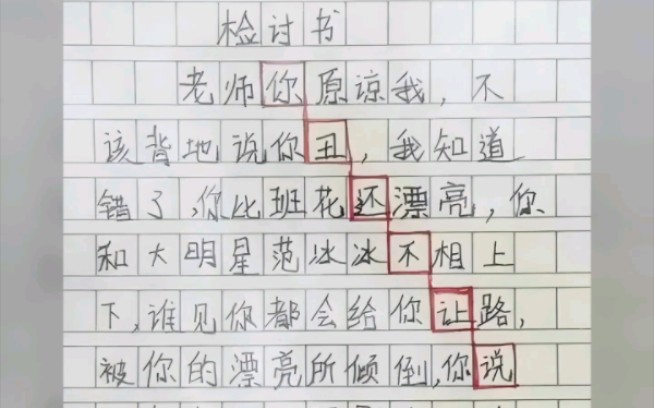 检讨书
老师你原谅我,不
该背地说你丑,我知道
错了,你比班花还漂亮,你
和大明星范冰冰不相上
下,谁见你都会给你让路,
被你的漂亮所倾倒,你说